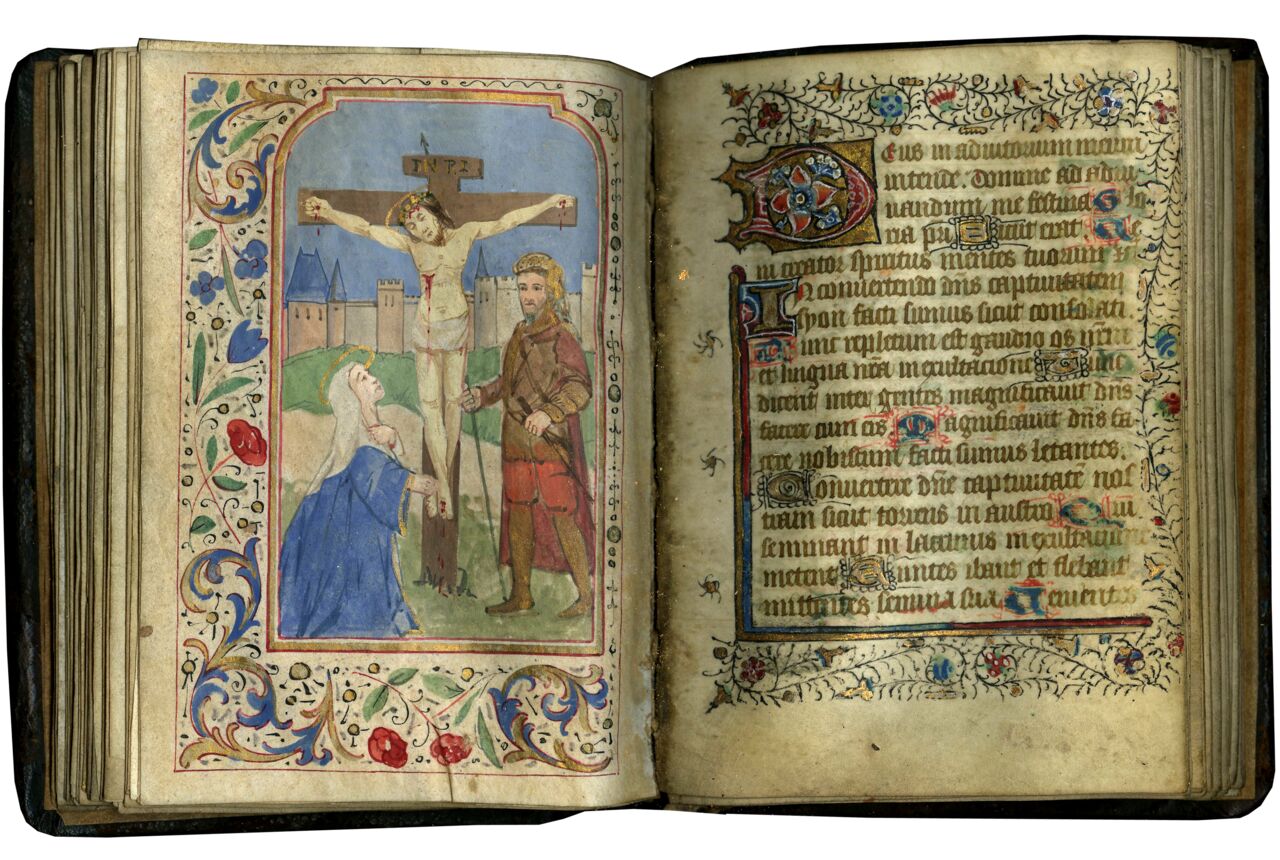 INRI
Deus in adiutorium meum
intende. Domine ad adiu
uandum me festina Glo
ria pri Sicut erat. Ve
ni creator spiritus mentes tuorum v
In conuertendo dn̄s captiuitatem
syon facti sumus sicut consolati.
Tunc repletum est gaudio os nr̄m
et lingua nr̄a in exultacione Tunc
dicent inter gentes magnificauit dn̄s
facere cum eis Magnificauit dn̄s fa
cere nobiscum facti sumus letantes.
Conuertere dn̄e captiuitatē nos
tram sicut torrens in austro Qui
seminant in lacrimis in exultacione
metent Euntes ibant et flebant
mittentes semina sua Uenientes